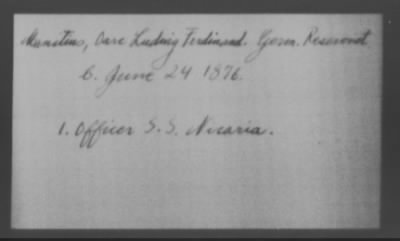 Manstens, Carl Ludwig Ferdinand. Germ. Reservist
b. June 24 1876.
1. Officer S.S. Nicaria.